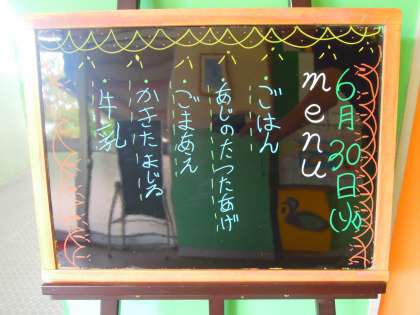 6月30日(火)
menu
・ごはん
・あじのたつたあげ
・ごまあえ
・かきたまじる
・牛乳